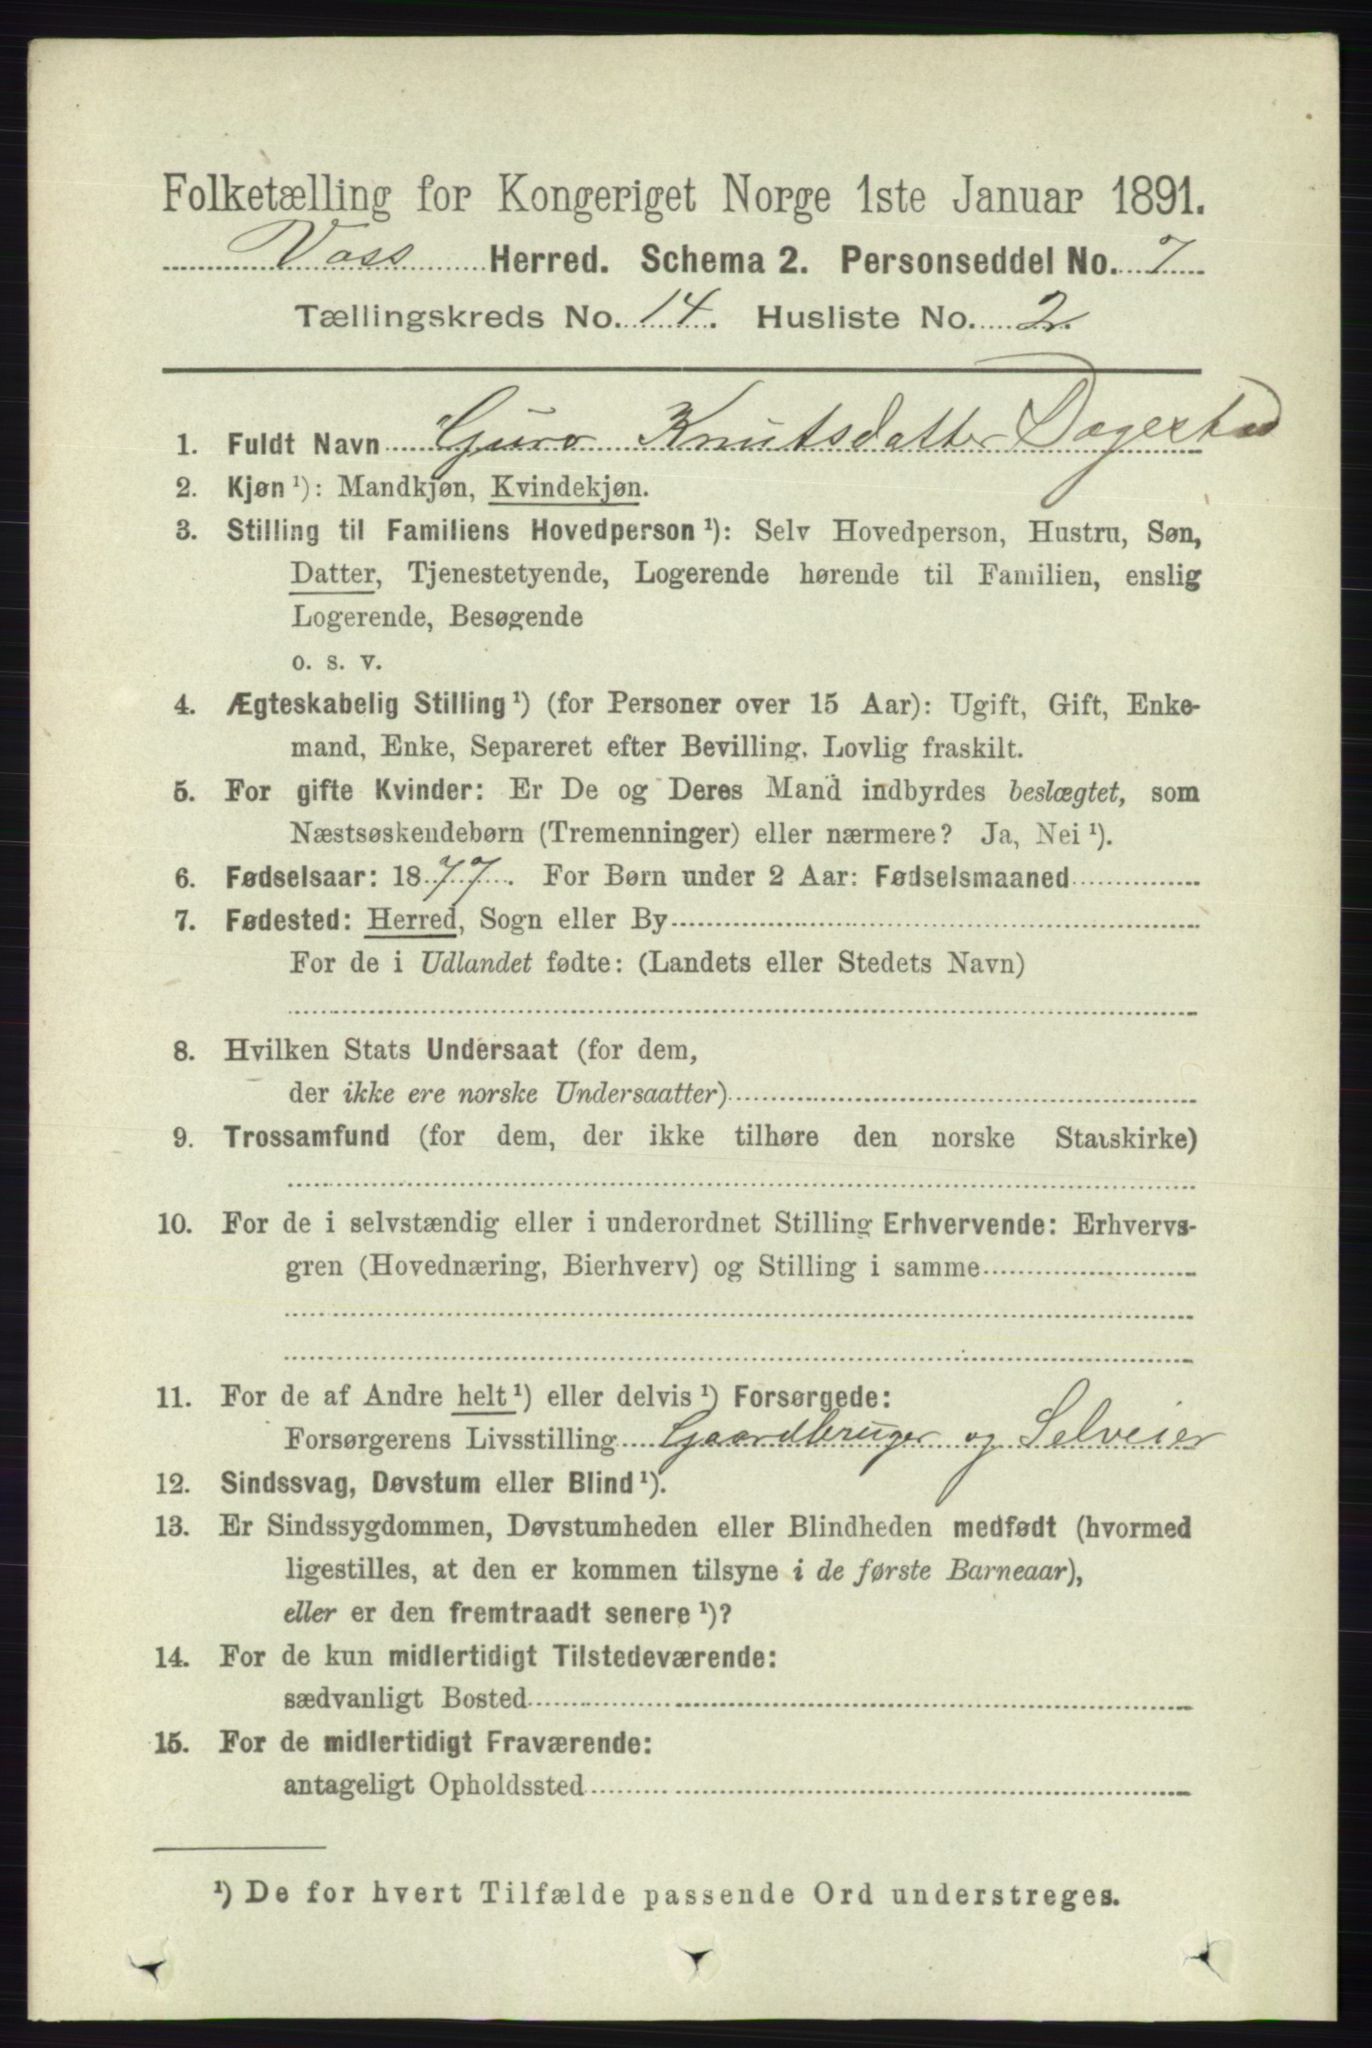 Folketælling for Kongeriget Norge 1ste Januar 1891.
Voss Herred. Schema 2. Personseddel No. 7
Tællingskreds No. 14. Husliste No. 2.
1. Fuldt Navn Guro Knutsdatter Dagestad
2. Kjøn ¹): Mandkjøn, Kvindekjøn.
3. Stilling til Familiens Hovedperson ¹): Selv Hovedperson, Hustru, Søn,
Datter, Tjenestetyende, Logerende hørende til Familien, enslig
Logerende, Besøgende
o. s. v.
4. Ægteskabelig Stilling ¹) (for Personer over 15 Aar): Ugift, Gift, Enke-
mand, Enke, Separeret efter Bevilling, Lovlig fraskilt.
5. For gifte Kvinder: Er De og Deres Mand indbyrdes beslægtet, som
Næstsøskendebørn (Tremenninger) eller nærmere? Ja, Nei ¹).
6. Fødselsaar: 1877. For Børn under 2 Aar: Fødselsmaaned
7. Fødested: Herred, Sogn eller By
For de i Udlandet fødte: (Landets eller Stedets Navn)
8. Hvilken Stats Undersaat (for dem,
der ikke ere norske Undersaatter)
9. Trossamfund (for dem, der ikke tilhøre den norske Statskirke)
10. For de i selvstændig eller i underordnet Stilling Erhvervende: Erhvervs-
gren (Hovednæring, Bierhverv) og Stilling i samme
11. For de af Andre helt ¹) eller delvis ¹) Forsørgede:
Forsørgerens Livsstilling Gaardbruger og Selveier
12. Sindssvag, Døvstum eller Blind ¹).
13. Er Sindssygdommen, Døvstumheden eller Blindheden medfødt (hvormed
ligestilles, at den er kommen tilsyne i de første Barneaar),
eller er den fremtraadt senere ¹)?
14. For de kun midlertidigt Tilstedeværende:
sædvanligt Bosted
15. For de midlertidigt Fraværende:
antageligt Opholdssted
¹) De for hvert Tilfælde passende Ord understreges.